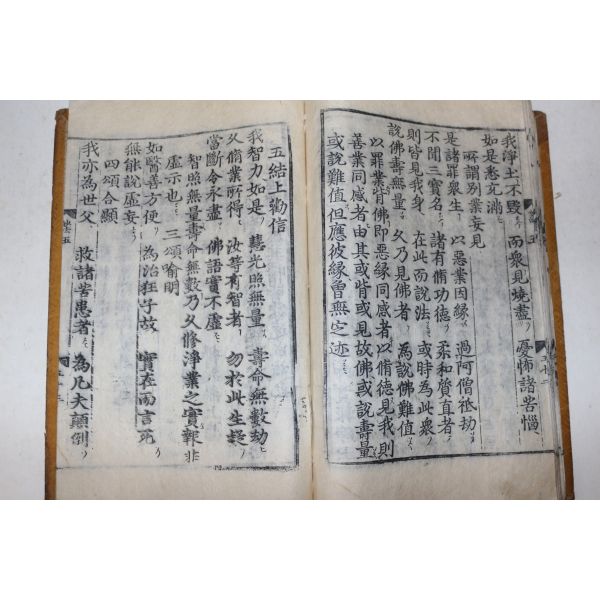 我淨土不毀 而衆見燒盡 憂怖諸苦惱
如是悉充滿
所謂別業妄見
是諸罪衆生 以惡業因緣 過阿僧祇劫
不聞三寶名 諸有脩功德 柔和質直者
則皆見我身 在此而說法 或時為此衆
說佛壽無量 久乃見佛者 為說佛難値
以罪業背佛即惡緣同感者以脩德見我則
善業同感者由其或背或見故佛或說壽量
或說難値但應彼緣曾無定迹
五結上勸信
我智力如是 慧光照無量 壽命無數劫
久脩業所得 汝等有智者 勿於此生疑
當斷令永盡 佛語實不虛
智照無量壽命無數乃久修淨業之實報非
虛示也 三頌喻明
如醫善方便 為治狂子故 實在而言死
無能說虛妄
四頌合顯
我亦為世父 救諸苦患者 為凡夫顛倒